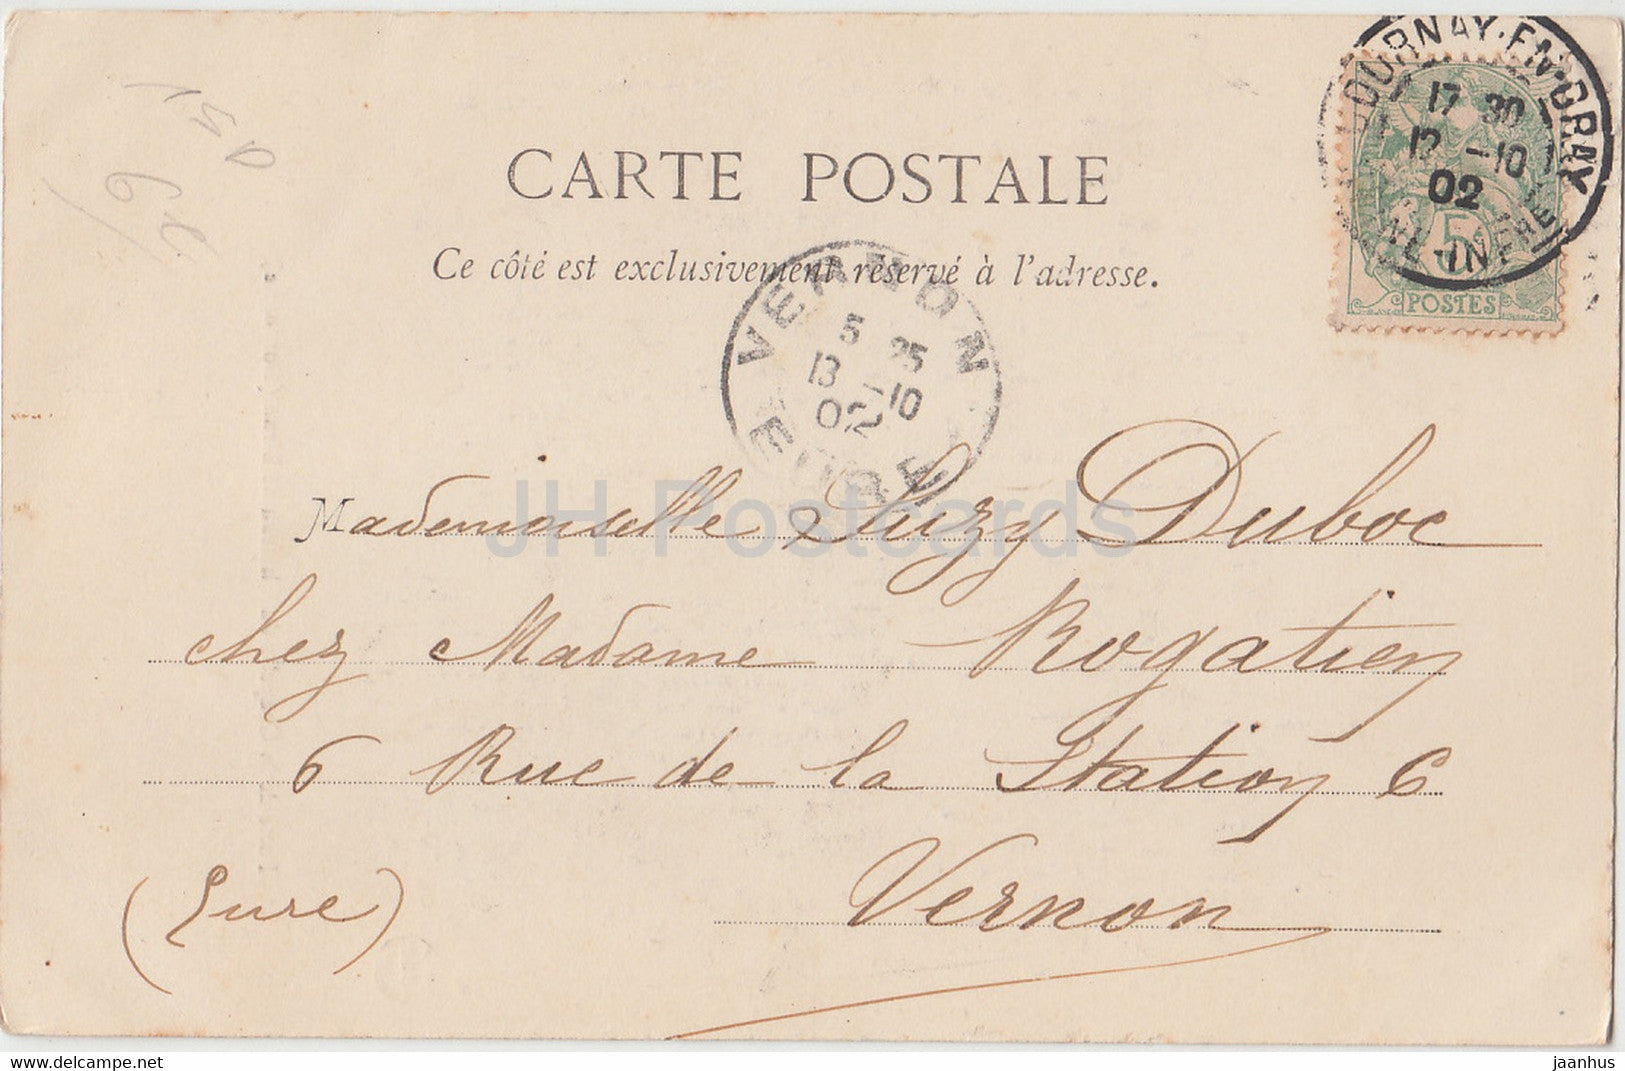 CARTE POSTALE
Ce côté est exclusivement réservé à l'adresse.
GOURNAY-EN-BRAY
17 30
12 -10
02
SEINE-INFÉRE
5c
POSTES
VERNON
5 25
13 -10
02
EURE
Mademoiselle Suzy Duboc
chez Madame Rogatien
6 Rue de la Station 6
Vernon
(Eure)
JH Postcards
www.delcampe.net
jaanhus